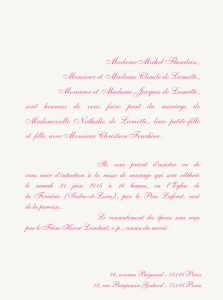 Madame Michel Flandrin,
Monsieur et Madame Claude de Lamotte,
Monsieur et Madame Jacques de Lamotte,
sont heureux de vous faire part du mariage de
Mademoiselle Nathalie de Lamotte, leur petite-fille
et fille, avec Monsieur Christian Fouchère.
Ils vous prient d'assister ou de
vous unir d'intention à la messe de mariage qui sera célébrée
le samedi 21 juin 2015 à 16 heures, en l'Église de
la Ferrière (Indre-et-Loire), par le Père Lafont, curé
de la paroisse.
Le consentement des époux sera reçu
par le Frère Hervé Lambert, o. p., cousin du marié.
24, avenue Bugeaud - 75116 Paris
12, rue Benjamin Godard - 75116 Paris